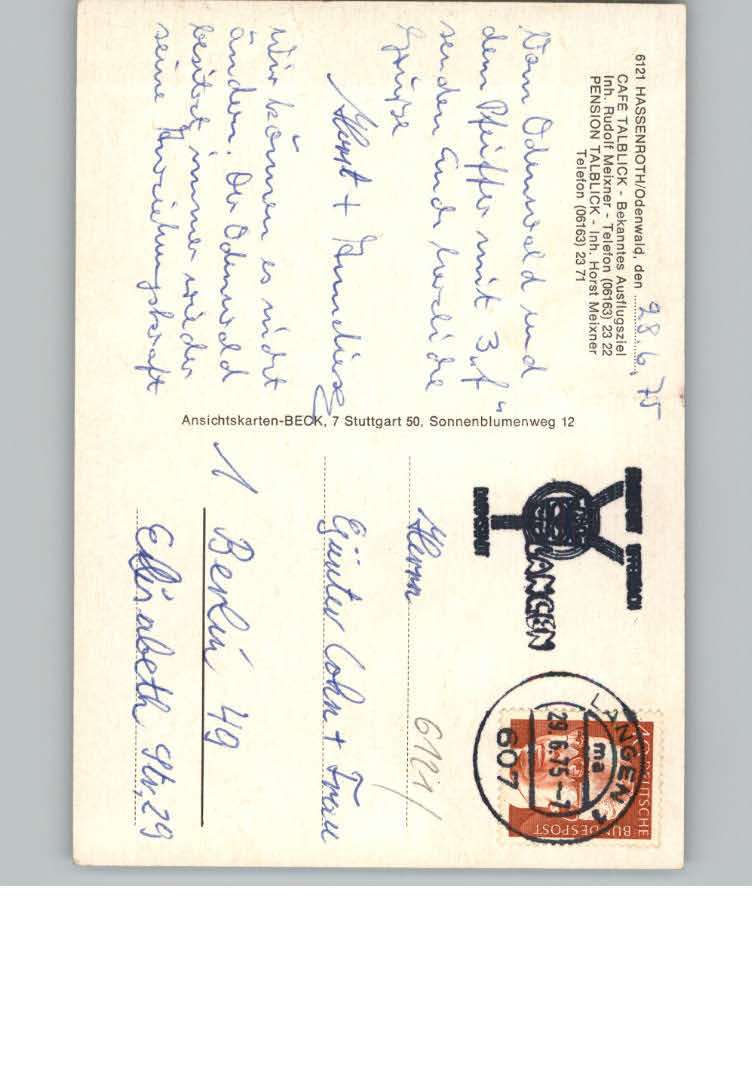 6121 HASSENROTH/Odenwald, den 28.6.75
CAFÉ TALBLICK - Bekanntes Ausflugsziel
Inh. Rudolf Meixner - Telefon (06163) 23 22
PENSION TALBLICK - Inh. Horst Meixner
Telefon (06163) 23 71
Vom Odenwald und
dem Pfiffer mit 3 „f“
senden Euch herzliche
Grüße
Horst + Anneliese
Wir können es nicht
ändern. Der Odenwald
besitzt immer wieder
seine Anziehungskraft
Ansichtskarten-BECK, 7 Stuttgart 50, Sonnenblumenweg 12
FRANKFURT OFFENBACH
LANGEN
DARMSTADT
LANGEN 1
ma
29.6.75
607
40 DEUTSCHE
BUNDESPOST
Herrn
6121/
Günter Cohn + Frau
1 Berlin 49
Elisabeth Str. 29